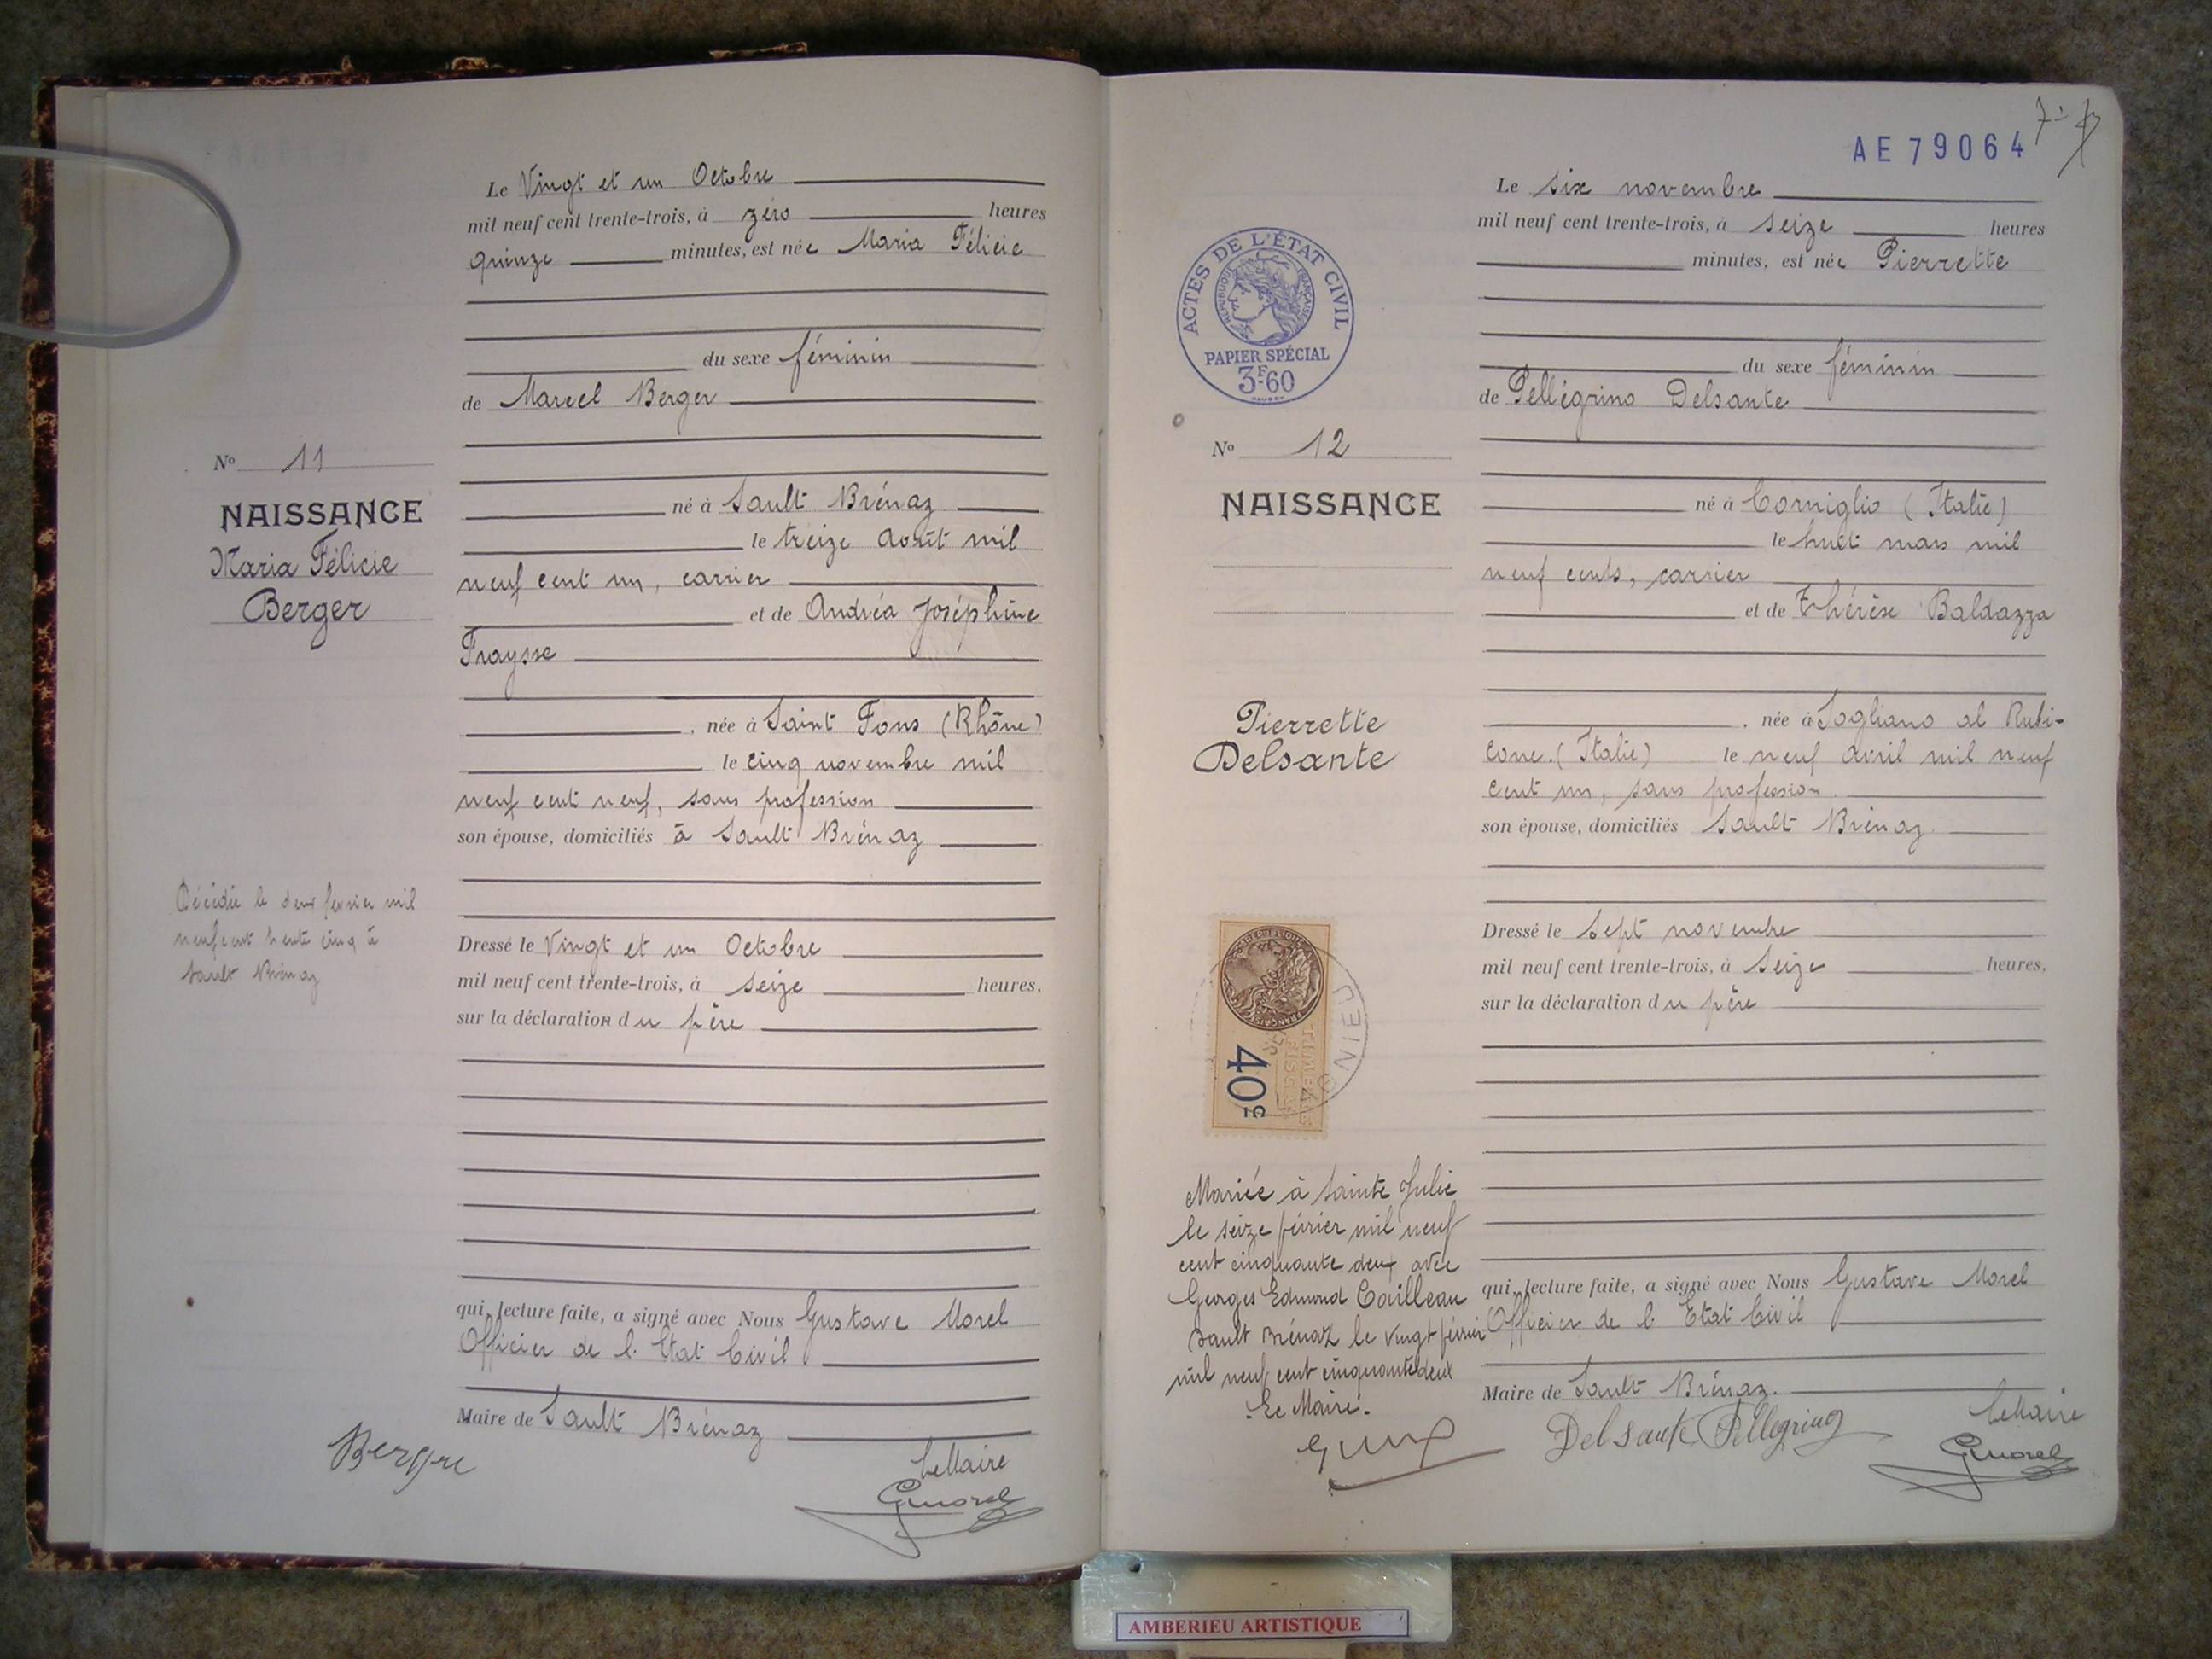 Le Vingt et un Octobre
mil neuf cent trente-trois, à zéro heures
quinze minutes, est née Maria Félicie
du sexe féminin
de Marcel Berger
né à Sault Brénaz
le treize Août mil
neuf cent un, carrier
et de Andréa Joséphine
Fraysse
, née à Saint Fons (Rhône)
le cinq novembre mil
neuf cent neuf, sans profession
son épouse, domiciliés à Sault Brénaz
Dressé le Vingt et un Octobre
mil neuf cent trente-trois, à seize heures.
sur la déclaration du père
qui, lecture faite, a signé avec Nous Gustave Morel
Officier de l'Etat Civil
Maire de Sault Brénaz
Berger
Le Maire
GMorel
No 11
NAISSANCE
Maria Félicie
Berger
Décédée le deux février mil
neuf cent trente cinq à
Sault Brénaz
AE79064
Le six novembre
mil neuf cent trente-trois, à seize heures
minutes, est née Pierrette
du sexe féminin
de Pellégrino Delsante
né à Corniglio (Italie)
le huit mars mil
neuf cents, carrier
et de Thérèse Baldazza
, née à Sogliano al Rubi-
cone. (Italie) le neuf Avril mil neuf
cent un, sans profession.
son épouse, domiciliés Sault Brénaz
Dressé le Sept novembre
mil neuf cent trente-trois, à seize heures,
sur la déclaration du père
qui, lecture faite, a signé avec Nous Gustave Morel
Officier de l'Etat Civil
Maire de Sault Brénaz.
Delsante Pellegrino
Le Maire
GMorel
ACTES DE L'ÉTAT CIVIL
RÉPUBLIQUE FRANÇAISE
PAPIER SPÉCIAL
3F60
No 12
NAISSANCE
Pierrette
Delsante
TIMBRE
FISCAL
40c
Mariée à Sainte Julie
le seize février mil neuf
cent cinquante deux avec
Georges Edmond Cailleau
Sault Brénaz le vingt février
mil neuf cent cinquante deux
Le Maire.
AMBERIEU ARTISTIQUE